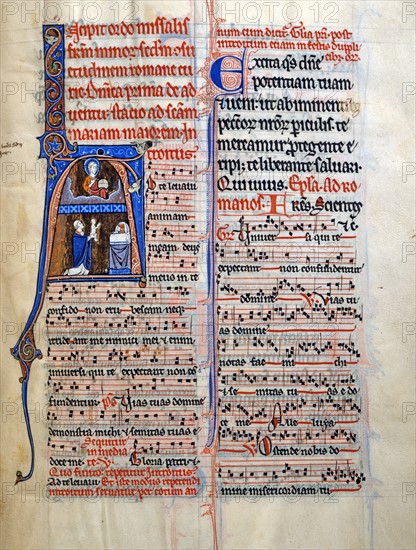 Incipit ordo missalis
fratrum minorum secundum consu
etudinem romane cu
rie. Dominica prima de ad
ventu. Statio ad sanctam
mariam maiorem. In
troitus.
Ad te levavi
animam
meam deus
meus in te
confido non eru bescam neq3
irride ant me inimici mei et enim
universi qui te expectant non co
fundentur. ps Vias tuas domine
demonstra michi et semitas tuas e
doce me. Gloria patri et
Sequitur
in media
te
Ad te levavi. Et iste modus
introitum servatur per totum an
num cum dicitur Gloria patri post
introitum etiam in festis dupli
cibus.
Excita quesumus domine
potentiam tuam
et veni ut ab iminenti
bus peccatorum nostrorum periculis te
mereamur protegente e
ripi te liberante salvari.
Qui vivis. Epistola ad ro
manos. Fratres Scientes
Univer si qui te
expectant non confundentur
domine Vias tu
as domine
notas fac mi chi
et se mitas tuas e do
ce me Alleluya
Ostende nobis do
mine misericordiam tu